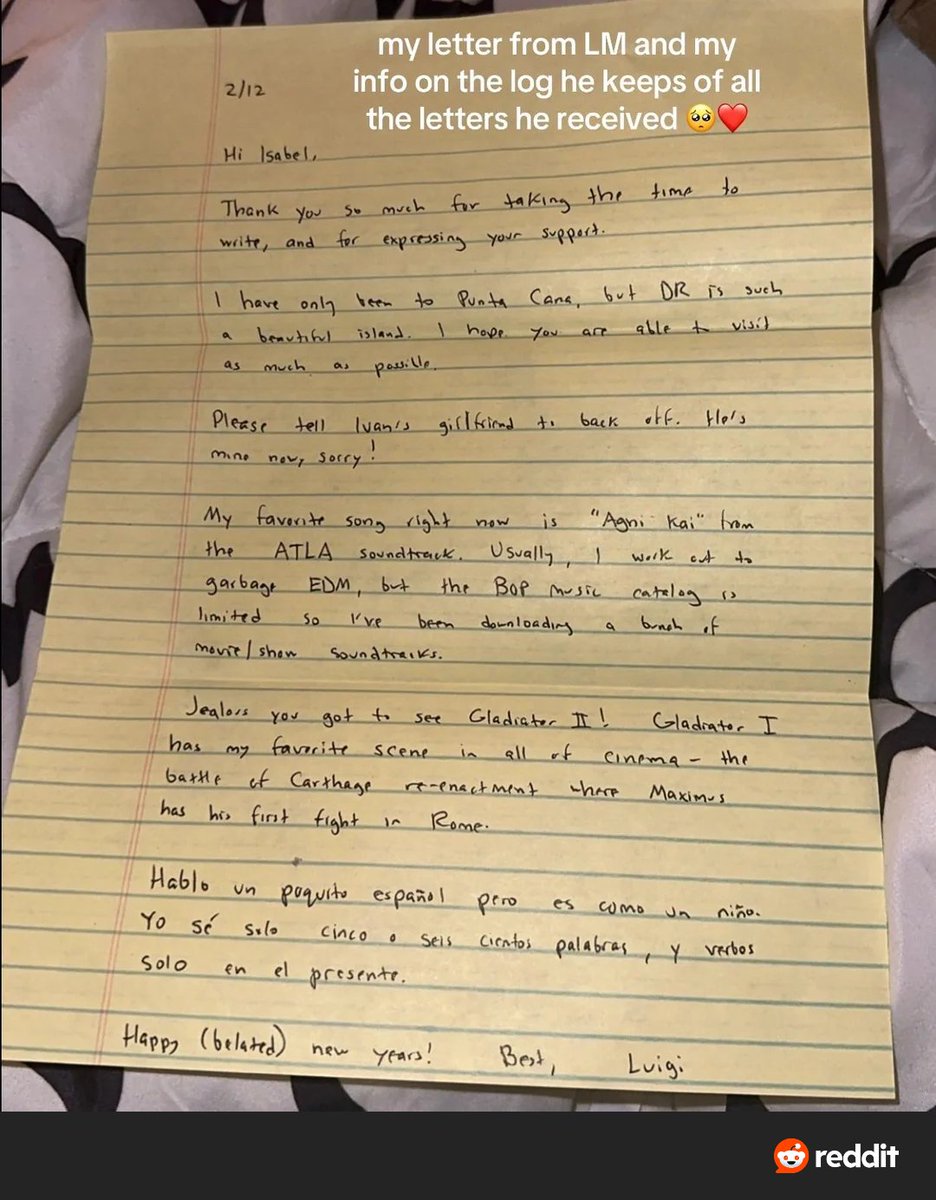 my letter from LM and my
info on the log he keeps of all
the letters he received 🥺❤️
2/12
Hi Isabel,
Thank you so much for taking the time to
write, and for expressing your support.
I have only been to Punta Cana, but DR is such
a beautiful island. I hope you are able to visit
as much as possible.
Please tell Ivan's girlfriend to back off. He's
mine now, sorry!
My favorite song right now is "Agni Kai" from
the ATLA soundtrack. Usually, I work out to
garbage EDM, but the BOP music catalog is
limited so I've been downloading a bunch of
movie/show soundtracks.
Jealous you got to see Gladiator II! Gladiator I
has my favorite scene in all of cinema - the
battle of Carthage re-enactment where Maximus
has his first fight in Rome.
Hablo un poquito español pero es como un niño.
Yo sé solo cinco o seis cientos palabras, y verbos
solo en el presente.
Happy (belated) new years! Best, Luigi
reddit